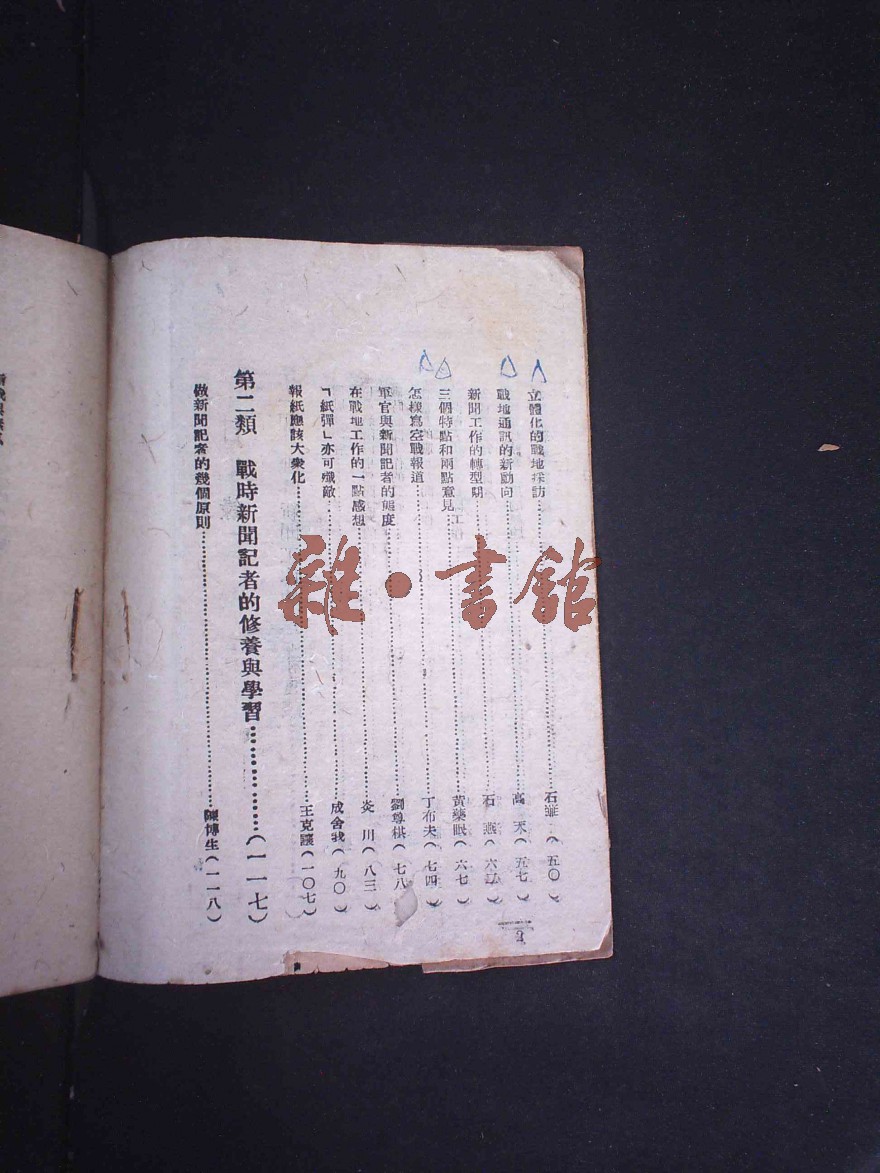 立體化的戰地採訪……石(五〇)
戰地通訊的新動向……高天(五七)
新聞工作的轉型期……石燕(六)
三個特點和兩點意見……黃藥眠(六七)
怎樣寫空戰報道……丁布夫(七四)
軍官與新聞記者的態度……劉尊棋(七八)
在戰地工作的一點感想……炎川(八三)
「紙彈」亦可殲敵……成舍我(九〇)
報紙應該大衆化……王克讓(一〇七)
第二類 戰時新聞記者的修養與學習……(一一七)
做新聞記者的幾個原則……陳博生(一一八)
雜·書館